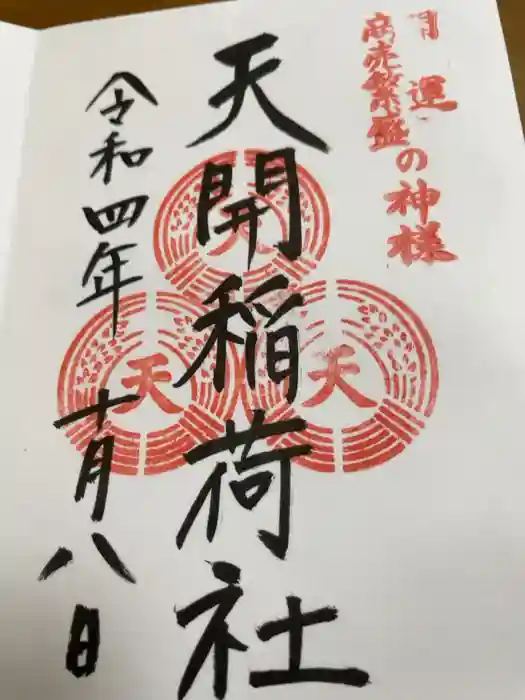 開運
商売繁盛
の神様
天開稲荷社
天
天
天
令和四年十月八日